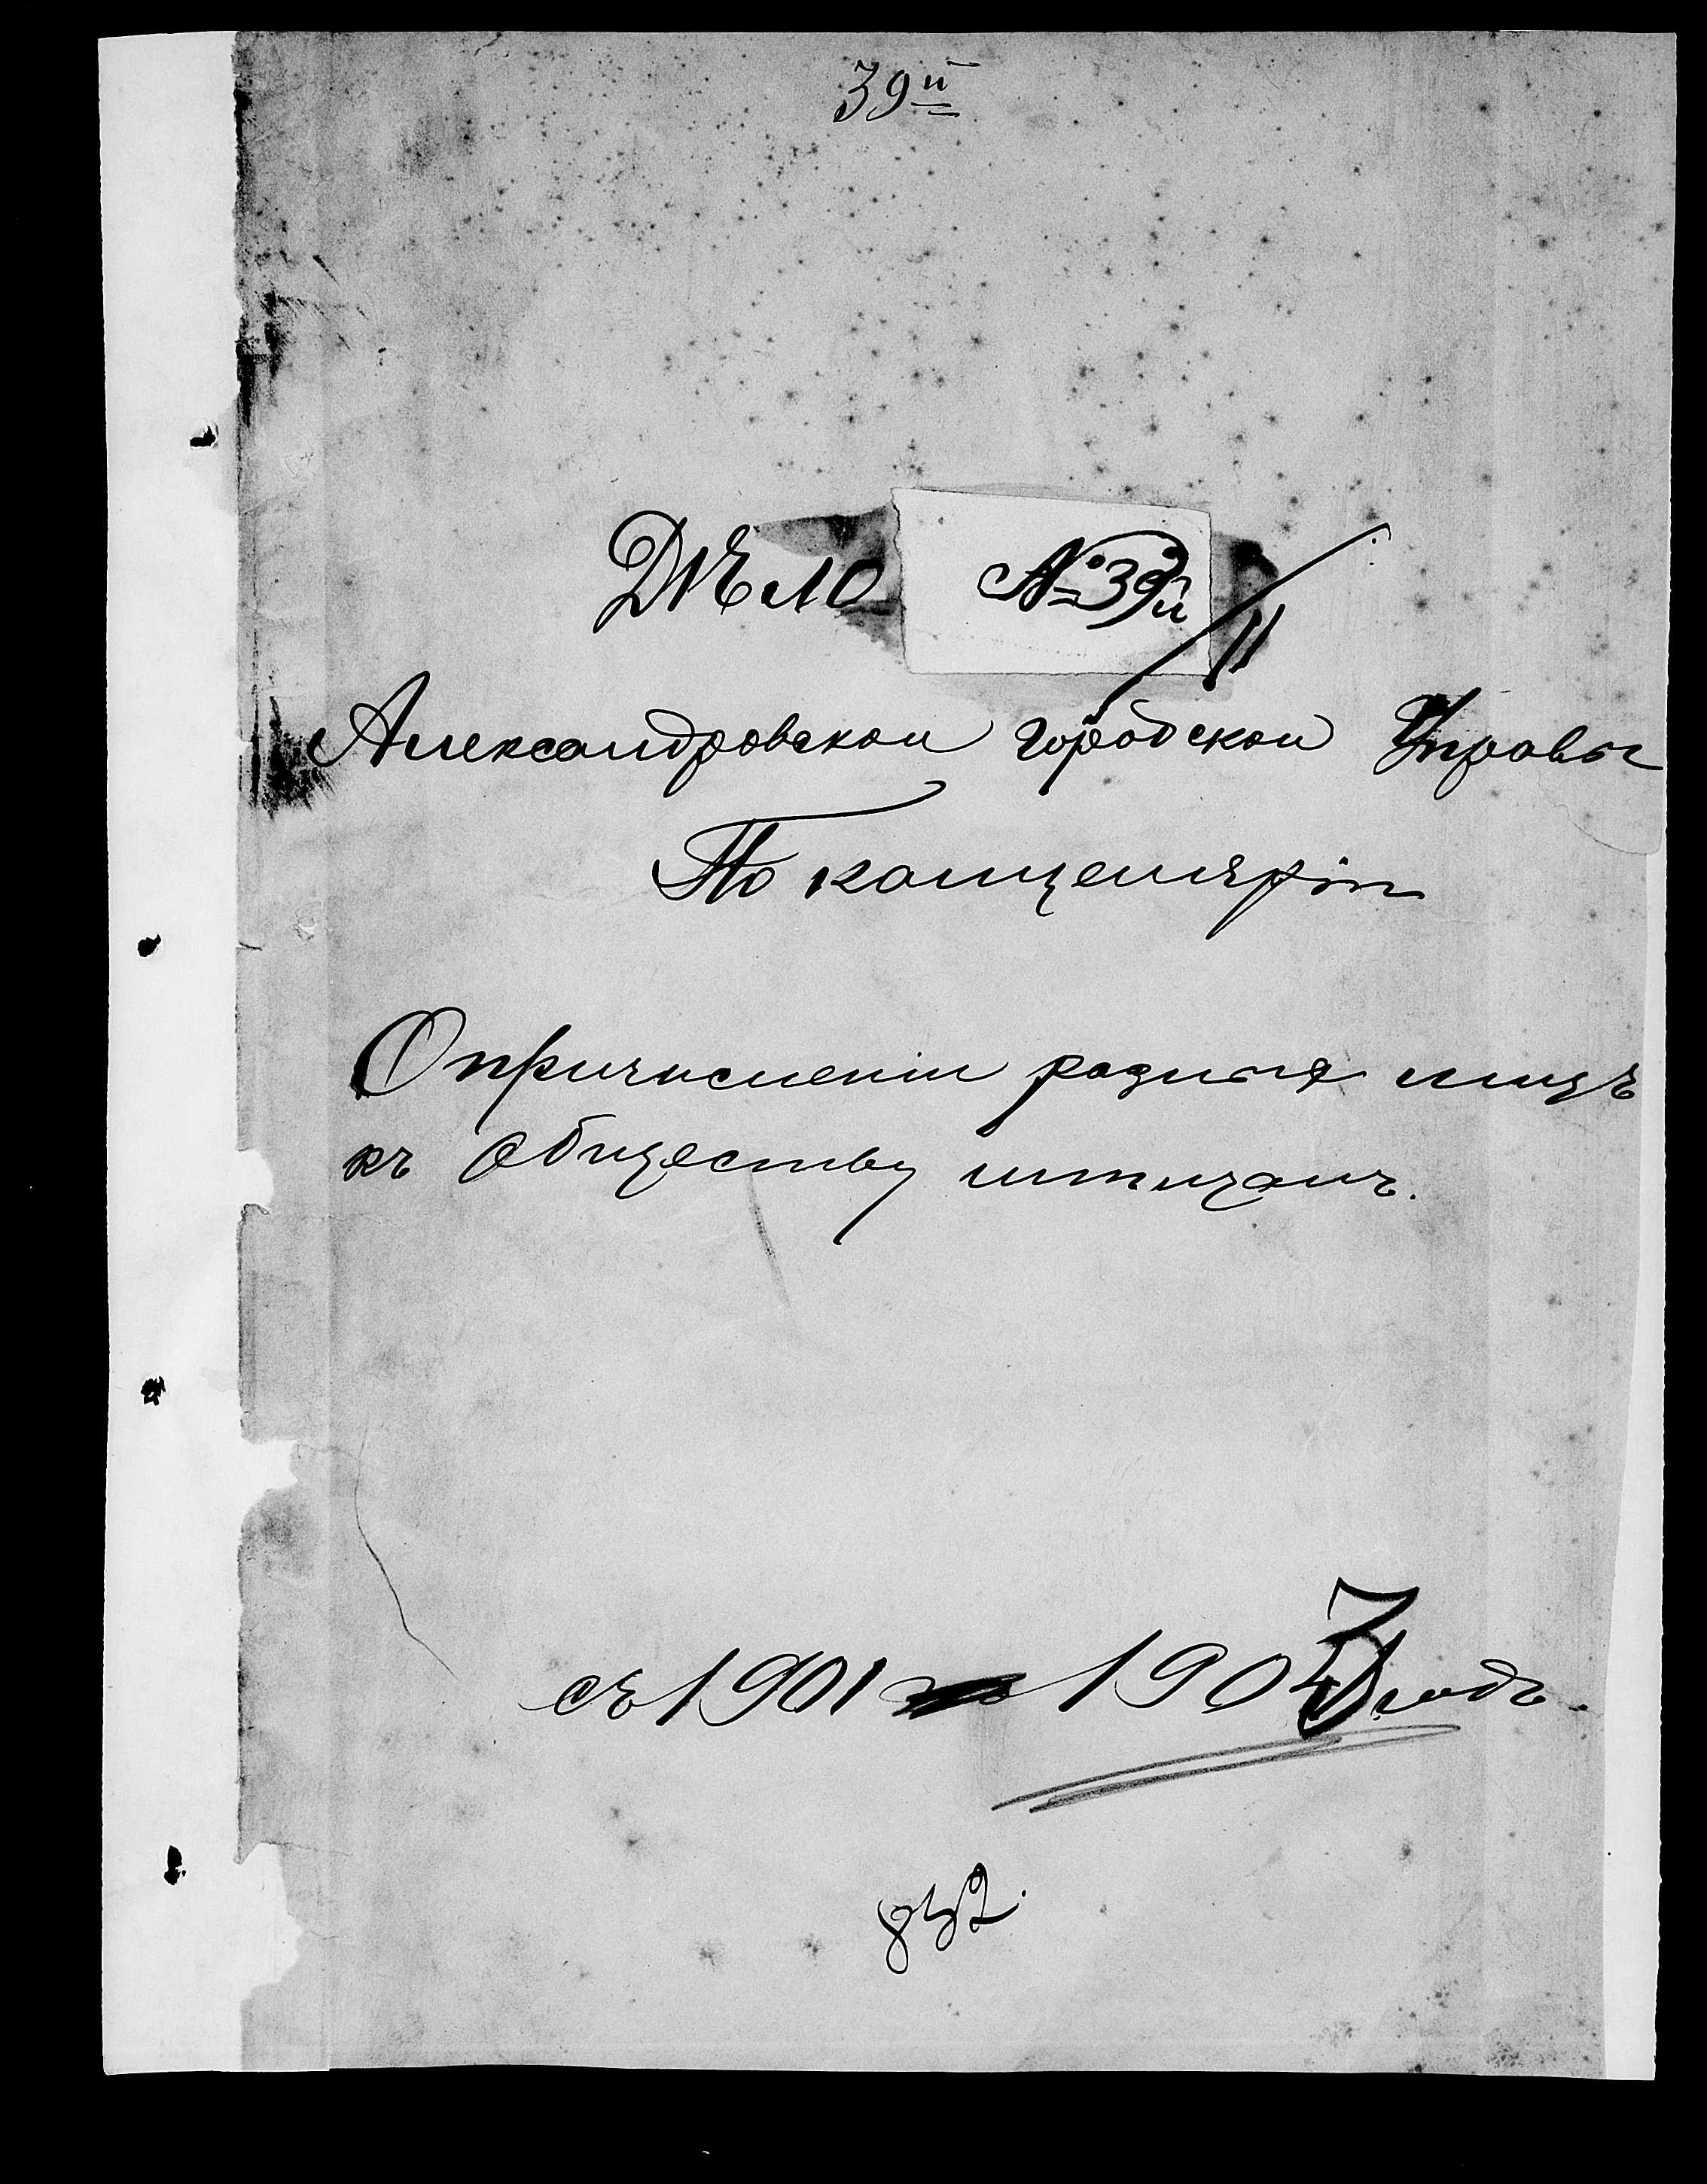 39й
Дѣло № 39й
Александровской городской Управы
По канцеляріи
О причисленіи разныхъ лицъ
къ обществу мѣщанъ.
съ 1901 по 1907 годъ.
832.